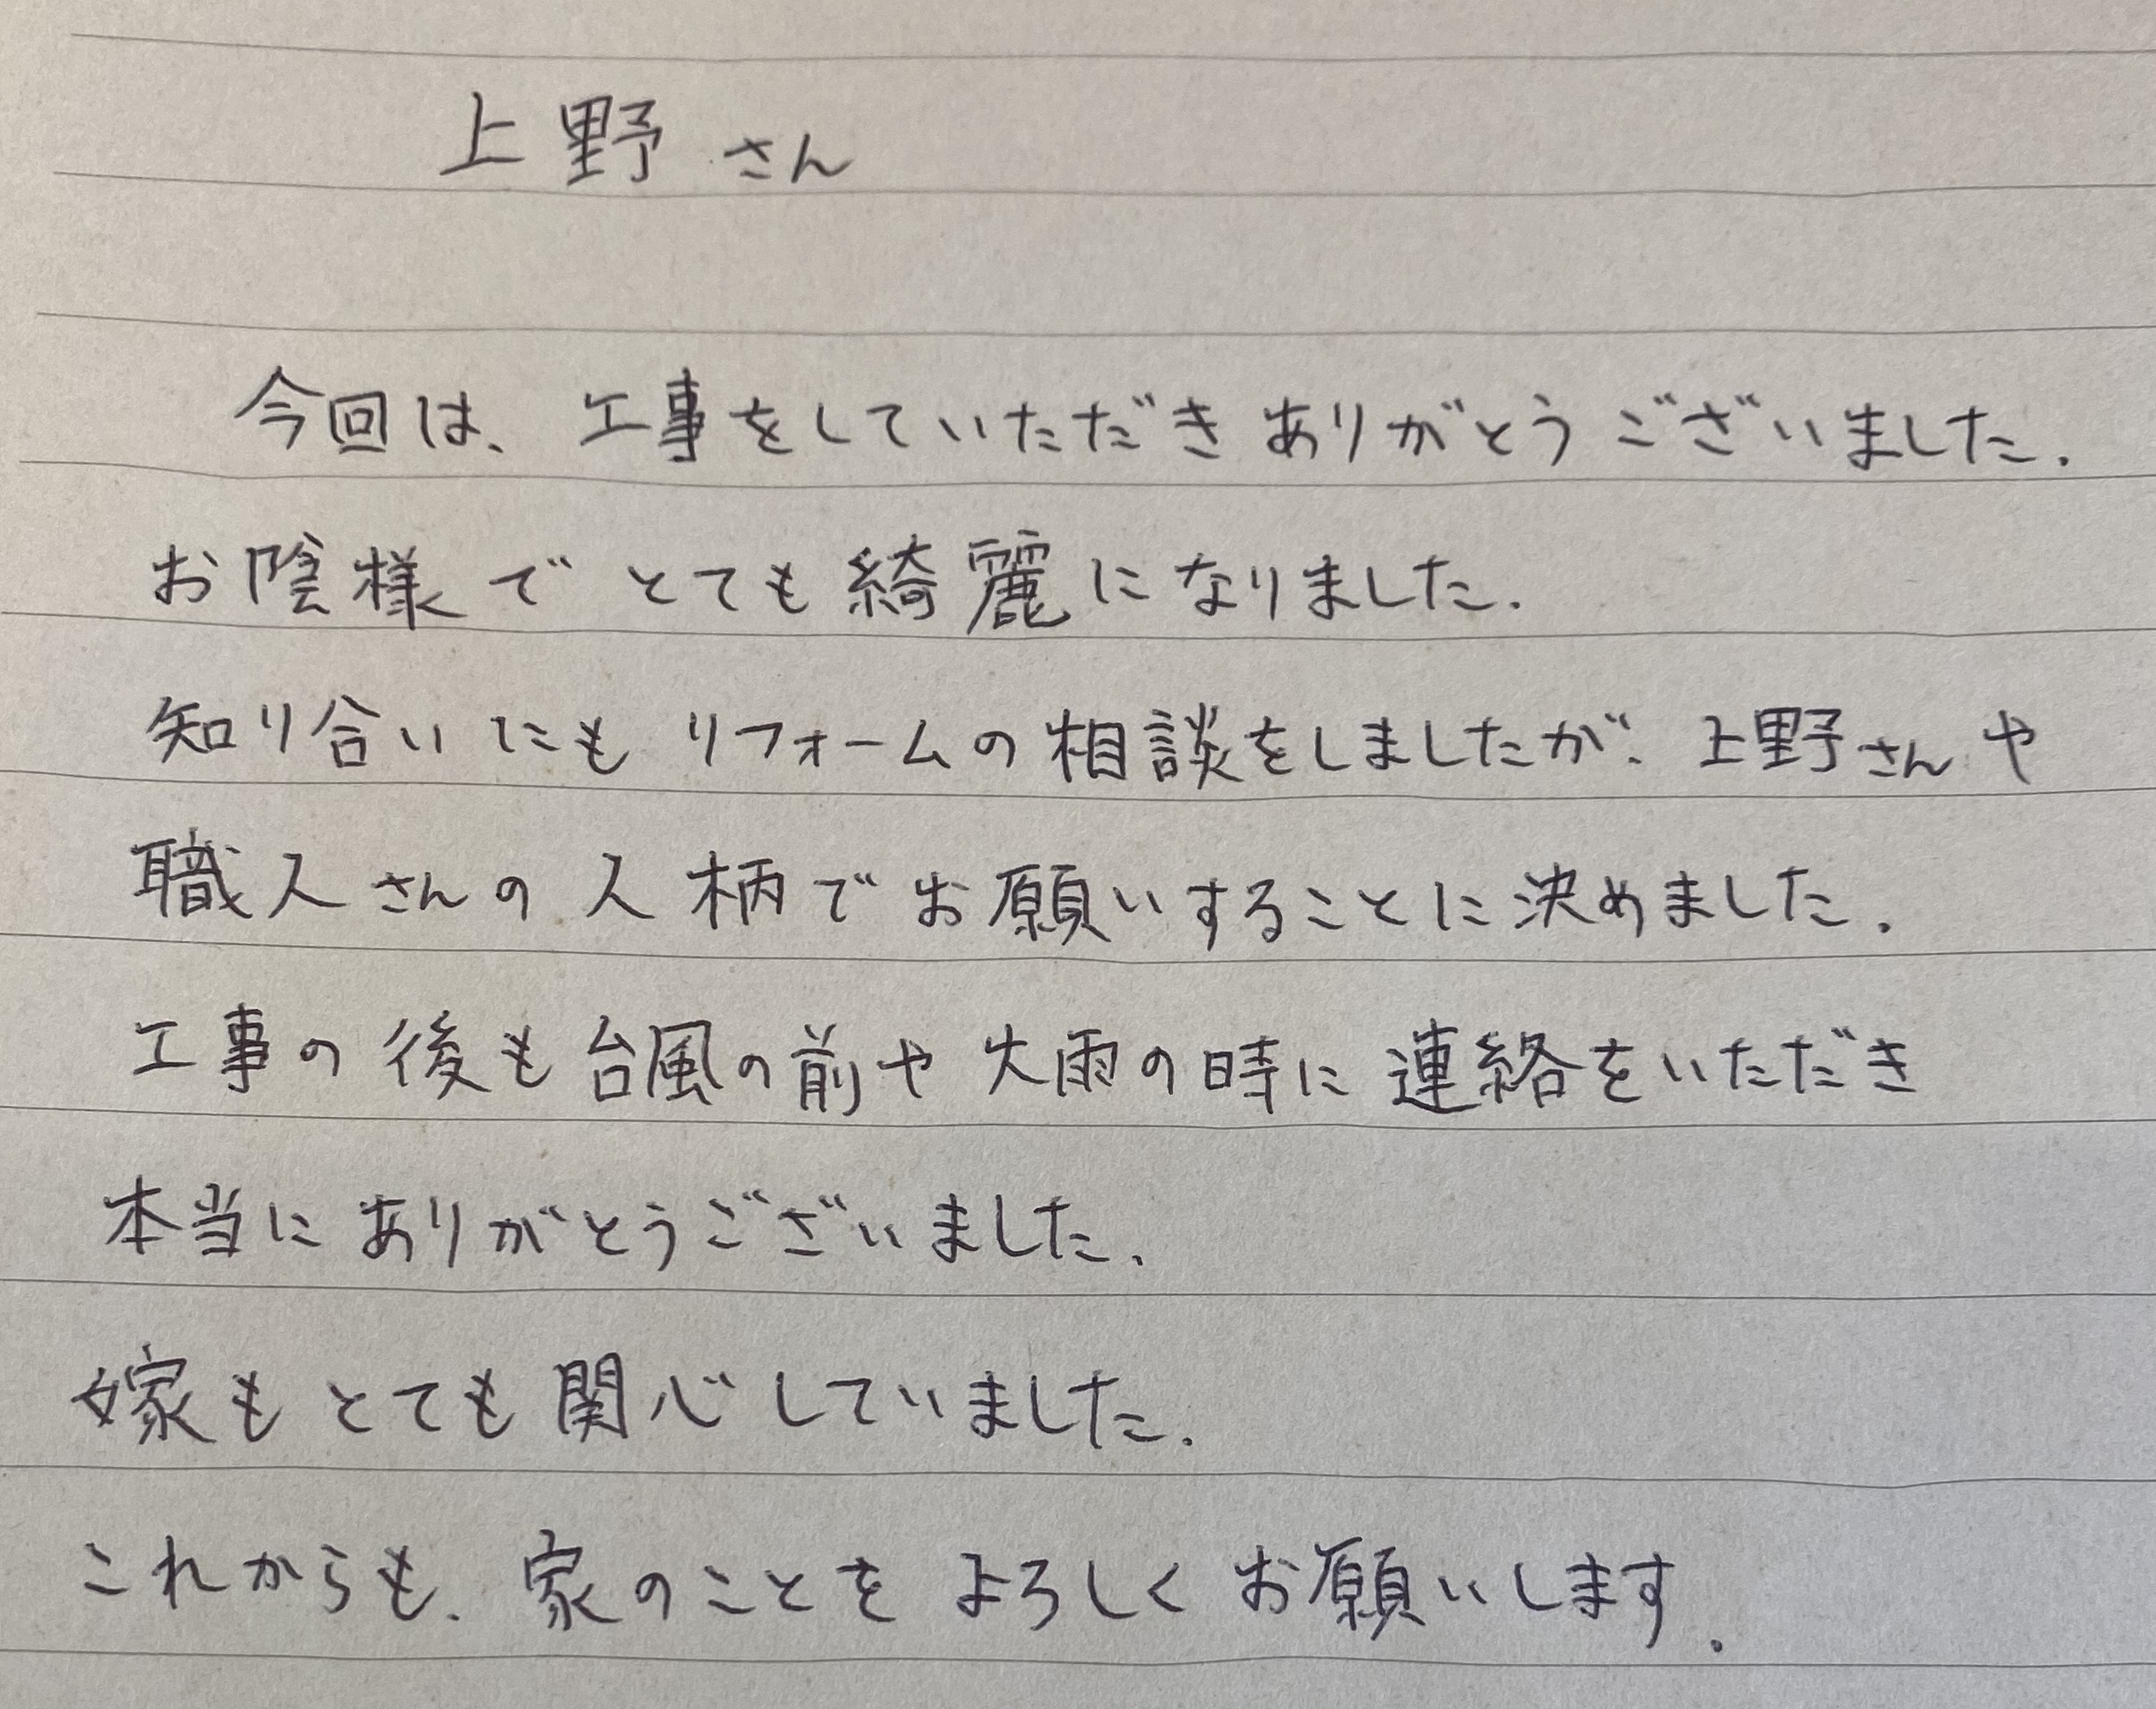 上野さん
今回は、工事をしていただきありがとうございました.
お陰様でとても綺麗になりました.
知り合いにもリフォームの相談をしましたが、上野さんや
職人さんの人柄でお願いすることに決めました.
工事の後も台風の前や大雨の時に連絡をいただき
本当にありがとうございました.
嫁もとても関心していました.
これからも、家のことをよろしくお願いします.